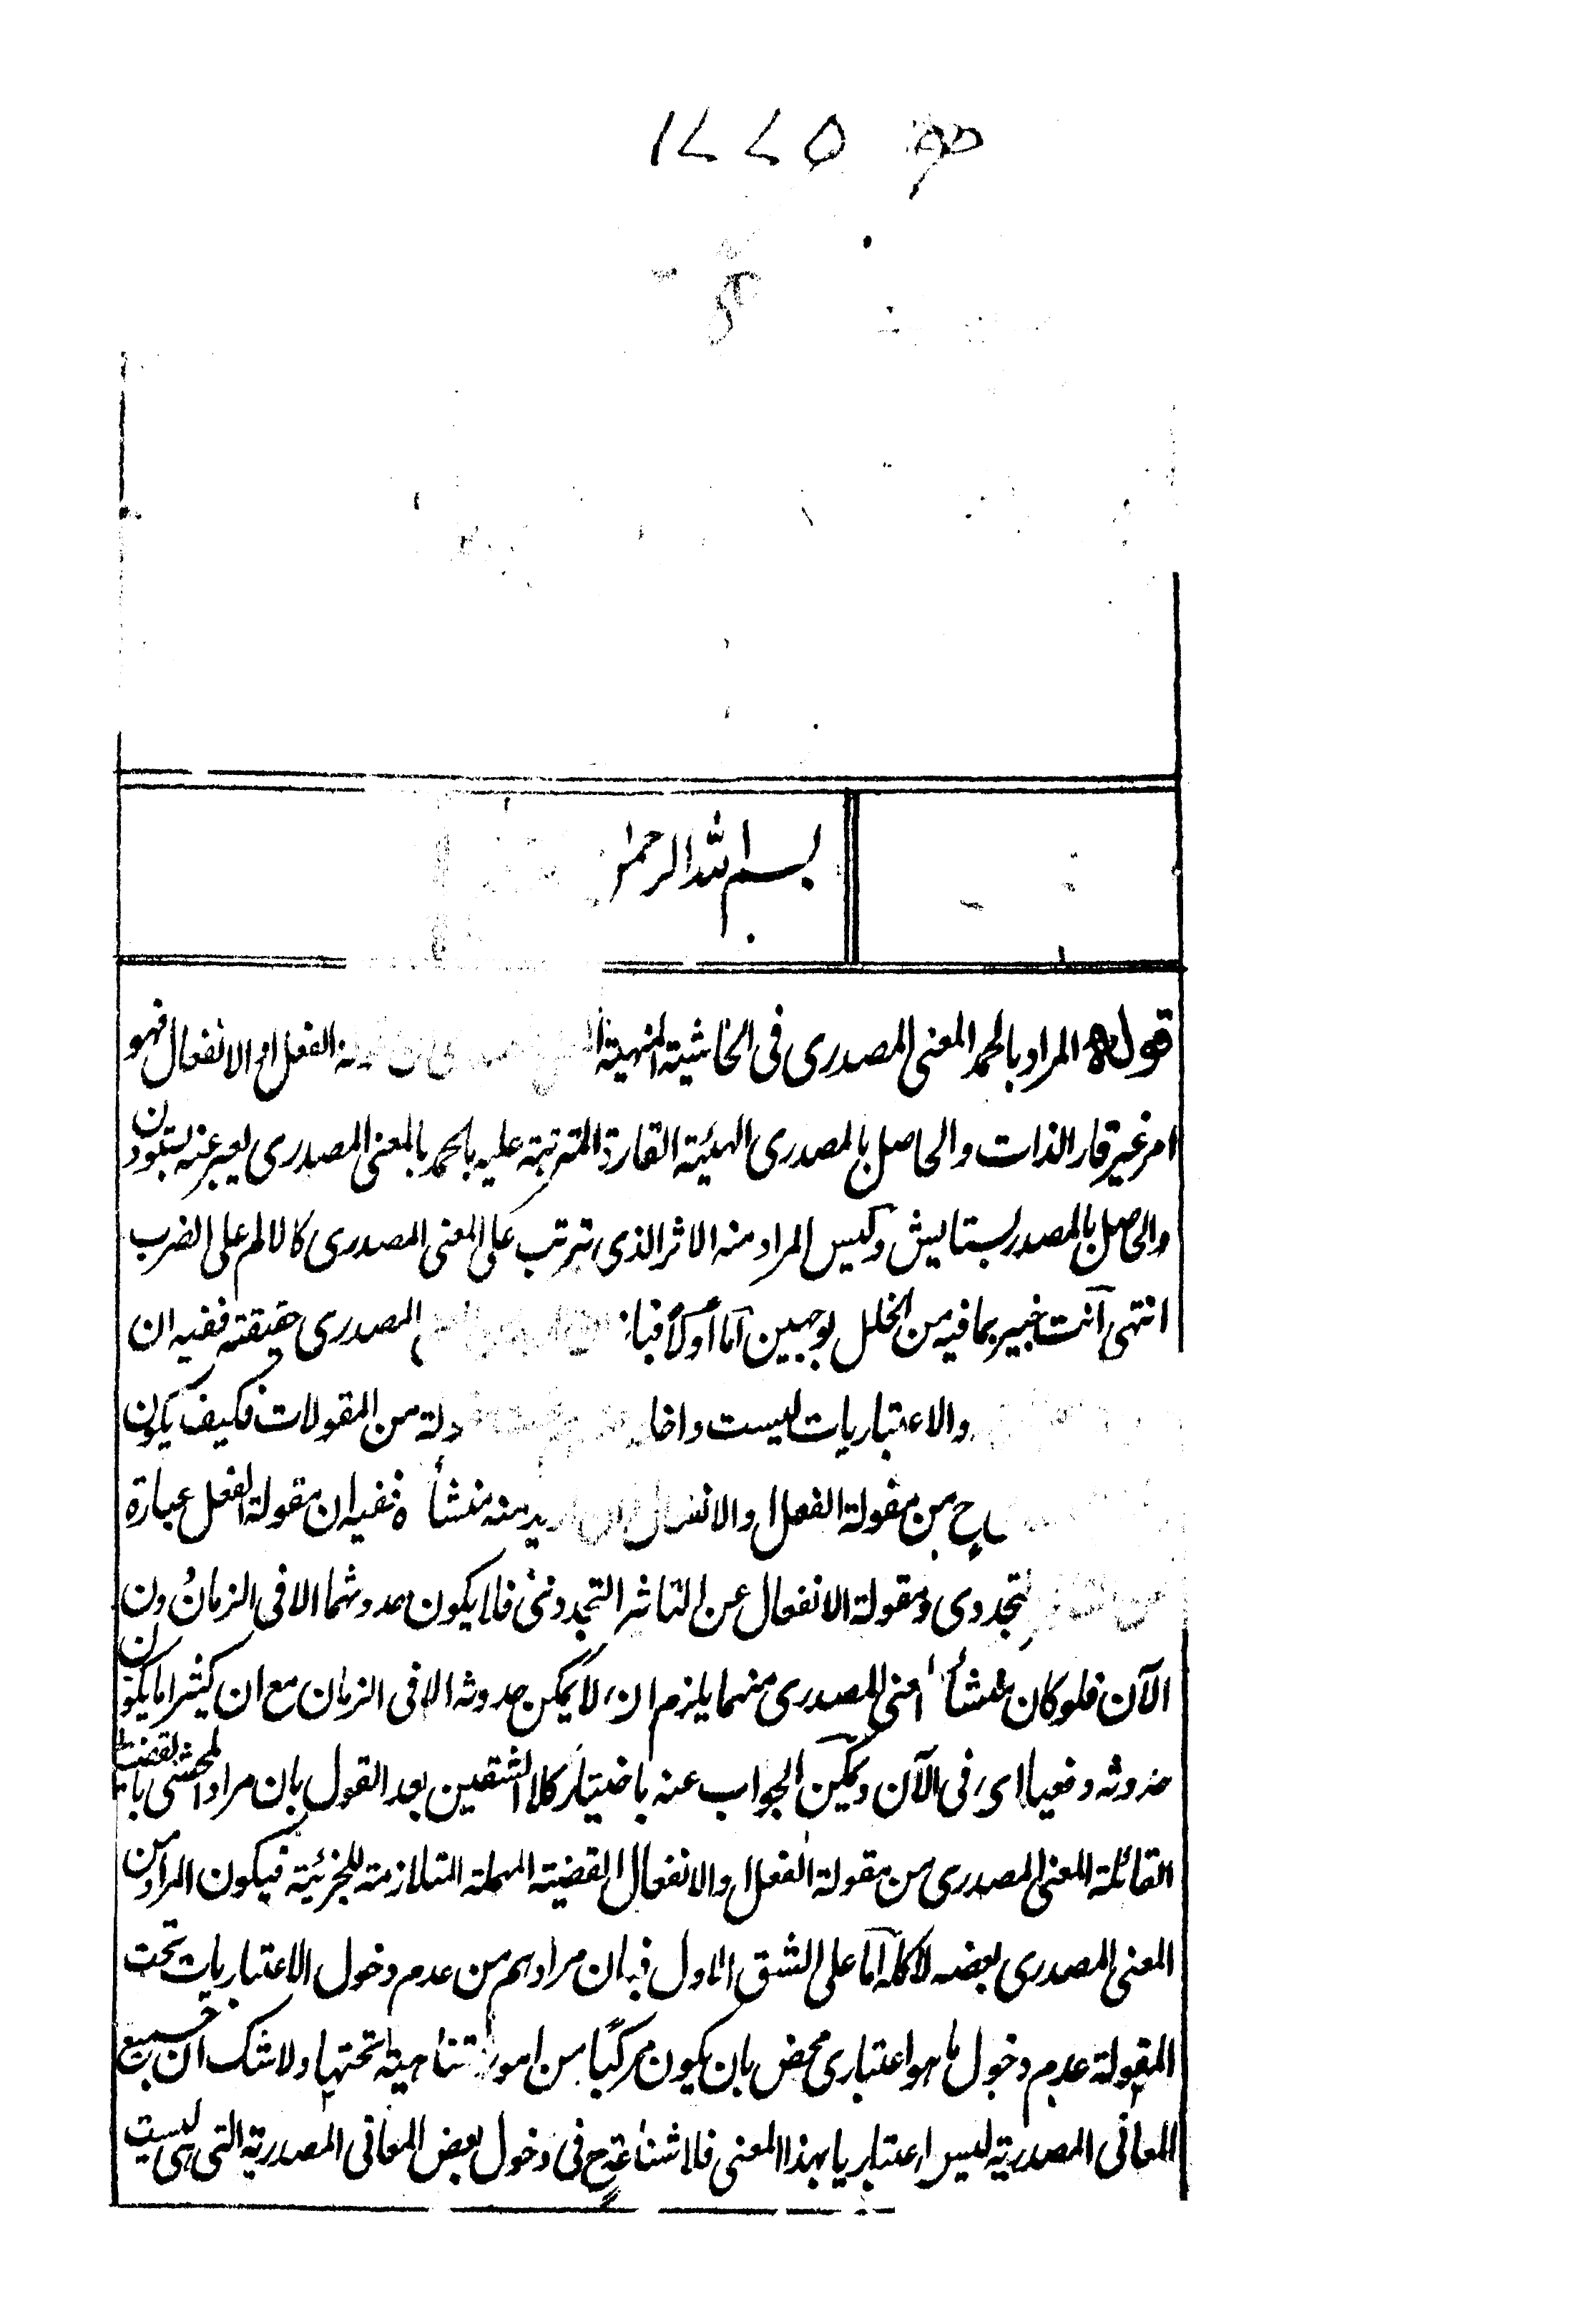 بسم الله الرحمن
قوله المراد بالحمد المعنى المصدرى فى الحاشية المنهية الفعل او الانفعال فهو
امر غير قار الذات والحاصل بالمصدرى الهيئة القارة المترتبة عليه بالحمد بالمعنى المصدرى يعبر عنه بستودن
والحاصل بالمصدر بستايش وليس المراد منه الاثر الذى يترتب على المعنى المصدرى كالالم على الضرب
انتهى انت خبير بما فيه من الخلل بوجهين اما اولا فبان المصدرى حقيقته ففيه ان
والاعتباريات ليست داخلة من المقولات فكيف يكون
ح من مقولة الفعل والانفعال وان اريد منه منشأه ففيه ان مقولة الفعل عبارة
عن التجددى ومقولة الانفعال عن التاثر التجددى فلا يكون حدوثهما الا فى الزمان دون
الآن فلو كان منشأ المعنى المصدرى منهما يلزم ان لا يمكن حدوثه الا فى الزمان مع ان كثيرا ما يكون
حدوثه دفعيا اى فى الآن ويمكن الجواب عنه باختيار كلا الشقين بعد القول بان مراد المحشى بالقضية
القائلة المعنى المصدرى من مقولة الفعل والانفعال القضية المهملة المتلازمة للجزئية فيكون المراد من
المعنى المصدرى بعضه لا كله اما على الشق الاول فبان مرادهم من عدم دخول الاعتباريات تحت
المقولة عدم دخول ما هو اعتبارى محض بان يكون مركبًا من امور متناهية تحتها ولا شك ان جميع
المعانى المصدرية ليس اعتباريا بهذا المعنى فلا شناعة ح فى دخول بعض المعانى المصدرية التى هى ليست